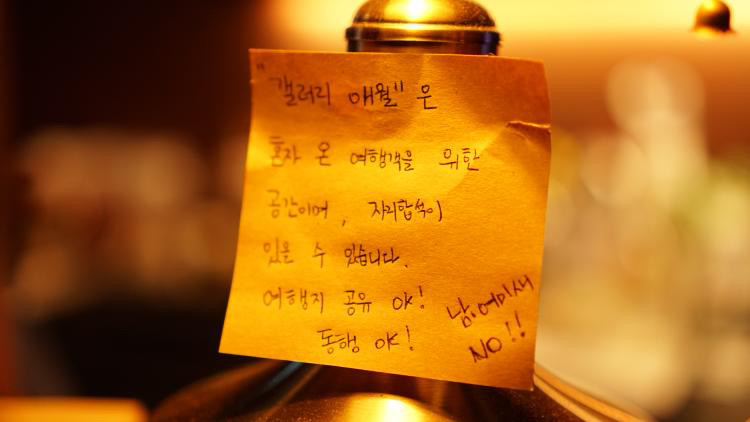 "갤러리 애월" 은
혼자 온 여행객을 위한
공간이며, 자리합석이
있을 수 있습니다.
여행지 공유 OK!
동행 OK!
남.여미새
NO!!